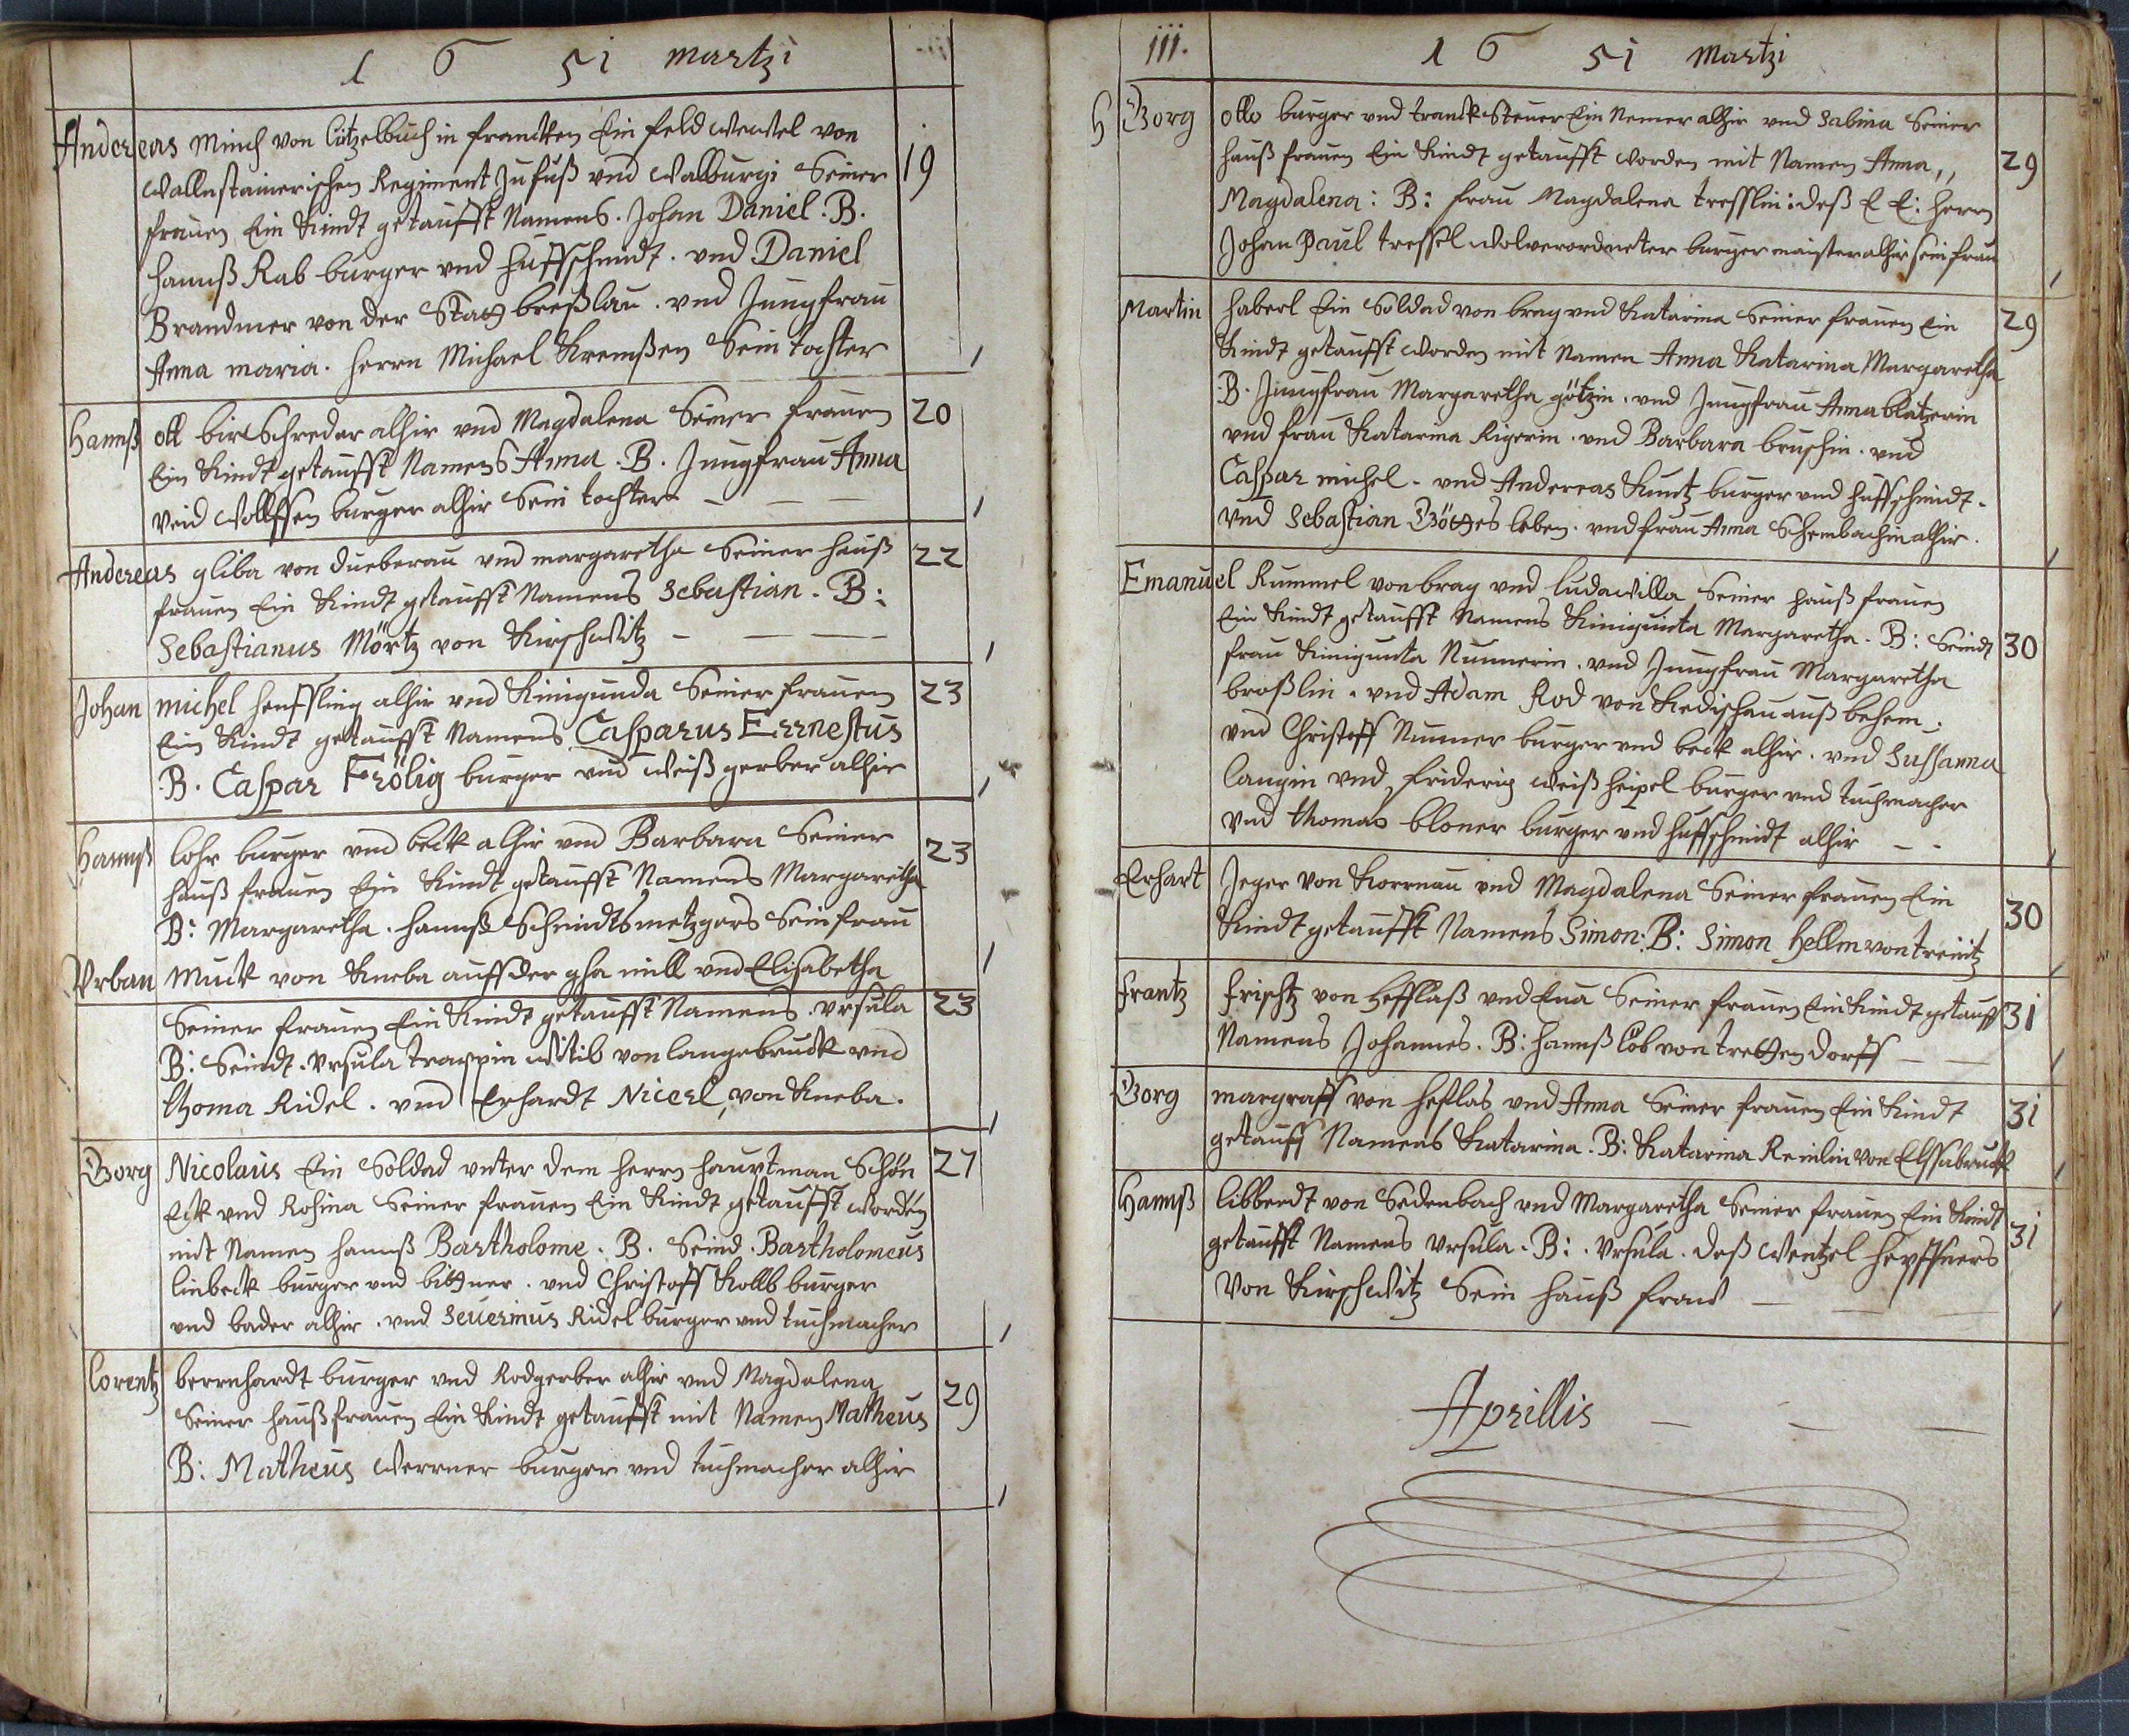 1 6 51 martzi
Andereas Minch von lützelbuch in francken Ein feld wewel von 19
wallnstainerischen Regiment zu fuß vnd walburgi Seiner
frauen Ein Kindt getaufft Namens. Johan Daniel. B.
hannß Rab burger vnd huffschmidt. vnd Daniel
Brandmer von der Statt breßlau. vnd Jungfrau
Anna maria. herrn Michael Kremßen Sein tochter
Hannß ott bir Schreder alhir vnd Magdalena Seiner frauen 20
Ein Kindt getaufft Namens Anna. B. Jungfrau Anna
veid wolffsen burger alhir Sein tochter
Andereas gliba von dueberau vnd margaretha Seiner hauß 22
frauen Ein Kindt getaufft Namens Sebastian. B:
Sebastianus Mörtz von Kirschwitz
Johan michel henffling alhir vnd Kinigunda Seiner frauen 23
Ein Kindt getaufft Namens Casparus Ernestus
B. Caspar Frölig burger vnd weiß gerber alhir
Hannß lohr burger vnd beck alhir vnd Barbara Seiner 23
hauß frauen Ein Kindt getaufft Namens Margaretha
B: Margaretha. hannß Schmidts metzgers Sein frau
Vrban Muck von Kneba auff der mill vnd Elisabetha
Seiner frauen Ein Kindt getaufft Namens. vrsula 23
B: Seindt. vrsula trappin witib von langebruck vnd
thoma Ridel. vnd Erhardt Nicerl von Kneba.
Görg Nicolaus Ein Soldad vnter dem herrn hauptman Schön 27
Eck vnd Rosina Seiner frauen Ein Kindt getaufft worden
mit Namen hannß Bartholome. B. Seind. Bartholomeus
linbeck burger vnd bittner. vnd Christoff Kollb burger
vnd bader alhir. vnd Seuerinus Ridel burger vnd tuchmacher
lorentz bernhardt burger vnd Rodgerber alhir vnd Magdalena 29
Seiner hauß frauen Ein Kindt getaufft mit Namen Matheus
B: Matheus werner burger vnd tuchmacher alhir
111. 1 6 51 Martzi
Görg otto burger vnd tranck Steuer Ein Nemer alhir vnd Sabina Seiner
hauß frauen Ein Kindt getaufft worden mit Namen Anna,, 29
Magdalena: B: frau Magdalena tresslin: deß E E: herrn
Johan Paul tressel wolverordneter burger maister alhir sein frau
Martin haberl Ein Soldad von brag vnd Katarina Seiner frauen Ein 29
Kindt getaufft worden mit Namen Anna Katarina Margaretha
B. Jungfrau Margaretha götzin. vnd Jungfrau Anna blatzerin
vnd frau Katarina Rigerin. vnd Barbara bruschin. vnd
Caspar michel. vnd Andereas Kuntz burger vnd huffschmidt.
vnd Sebastian Göttes leben. vnd frau Anna Schembachin alhir.
Emanuel Rummel von brag vnd ludawilla Seiner hauß frauen
Ein Kindt getaufft Namens Kinigunta Margaretha. B: Seindt 30
frau Kinigunta Nunnerin. vnd Jungfrau Margaretha
broßlin. vnd Adam Rod von Redischau auß behem.
vnd Christoff Nunner burger vnd beck alhir. vnd Sussanna
langin vnd friderig weiß heipel burger vnd tuchmacher
vnd thomas bloner burger vnd huffschmidt alhir
Erhart Jeger von Kornau vnd Magdalena Seiner frauen Ein 30
Kindt getaufft Namens Simon: B: Simon hellm von trenitz
frantz frischtz von hefflaß vnd Eua Seiner frauen Ein Kindt getauff 31
Namens Johannes. B: hannß löb von trettendorff
Görg margraff von heflas vnd Anna Seiner frauen Ein Kindt 31
getauff Namens Katarina. B: Katarina Reinlin von Elssabruck
Hannß libberdt von Sedenbach vnd Margaretha Seiner frauen Ein Kindt
getaufft Namens vrsula. B:. vrsula. deß wentzel hepffners 31
von Kirschwitz Sein hauß frau
Aprillis